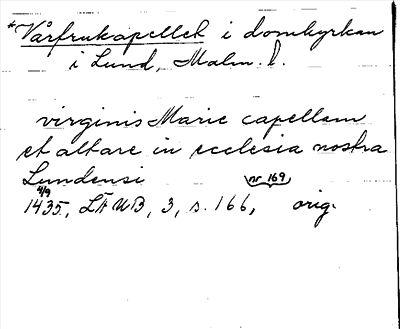 *Vårfrukapellet i domkyrkan
i Lund, Malm. l.
virginis Marie capellam
et altare in ecclesia nostra
Lundensi
4/9 nr 169
1435, LÄUB, 3, s. 166, orig.